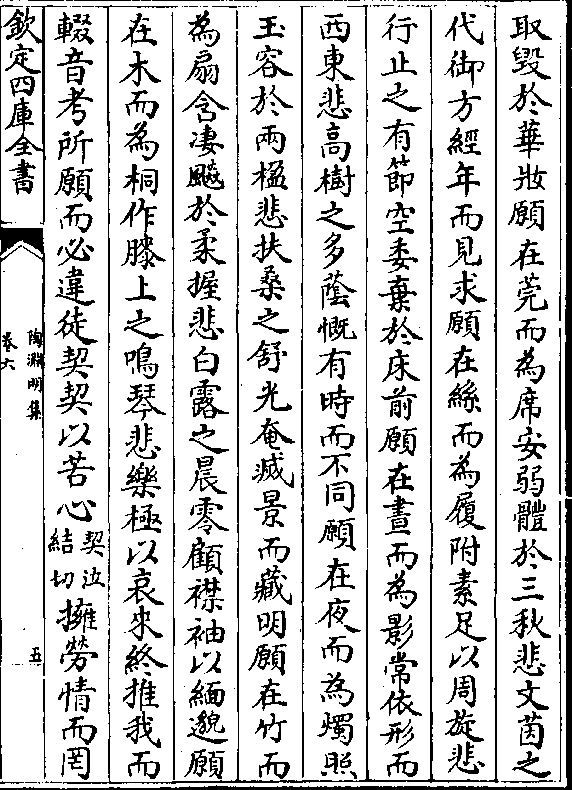 取毀於華妝願在莞而為席安弱體於三秋悲文茵之
代御方經年而見求願在絲而為履附素足以周旋悲
行止之有節空委棄於床前願在晝而為影常依形而
西東悲高樹之多蔭慨有時而不同願在夜而為燭照
玉容於兩楹悲扶桑之舒光奄滅景而藏明願在竹而
為扇含凄飈於柔握悲白露之晨零顧襟袖以緬邈願
在木而為桐作膝上之鳴琴悲樂極以哀来終推我而
輟音考所願而必違徒契契以苦心契泣結切擁勞情而罔
欽定四庫全書
陶淵明集
卷六
五